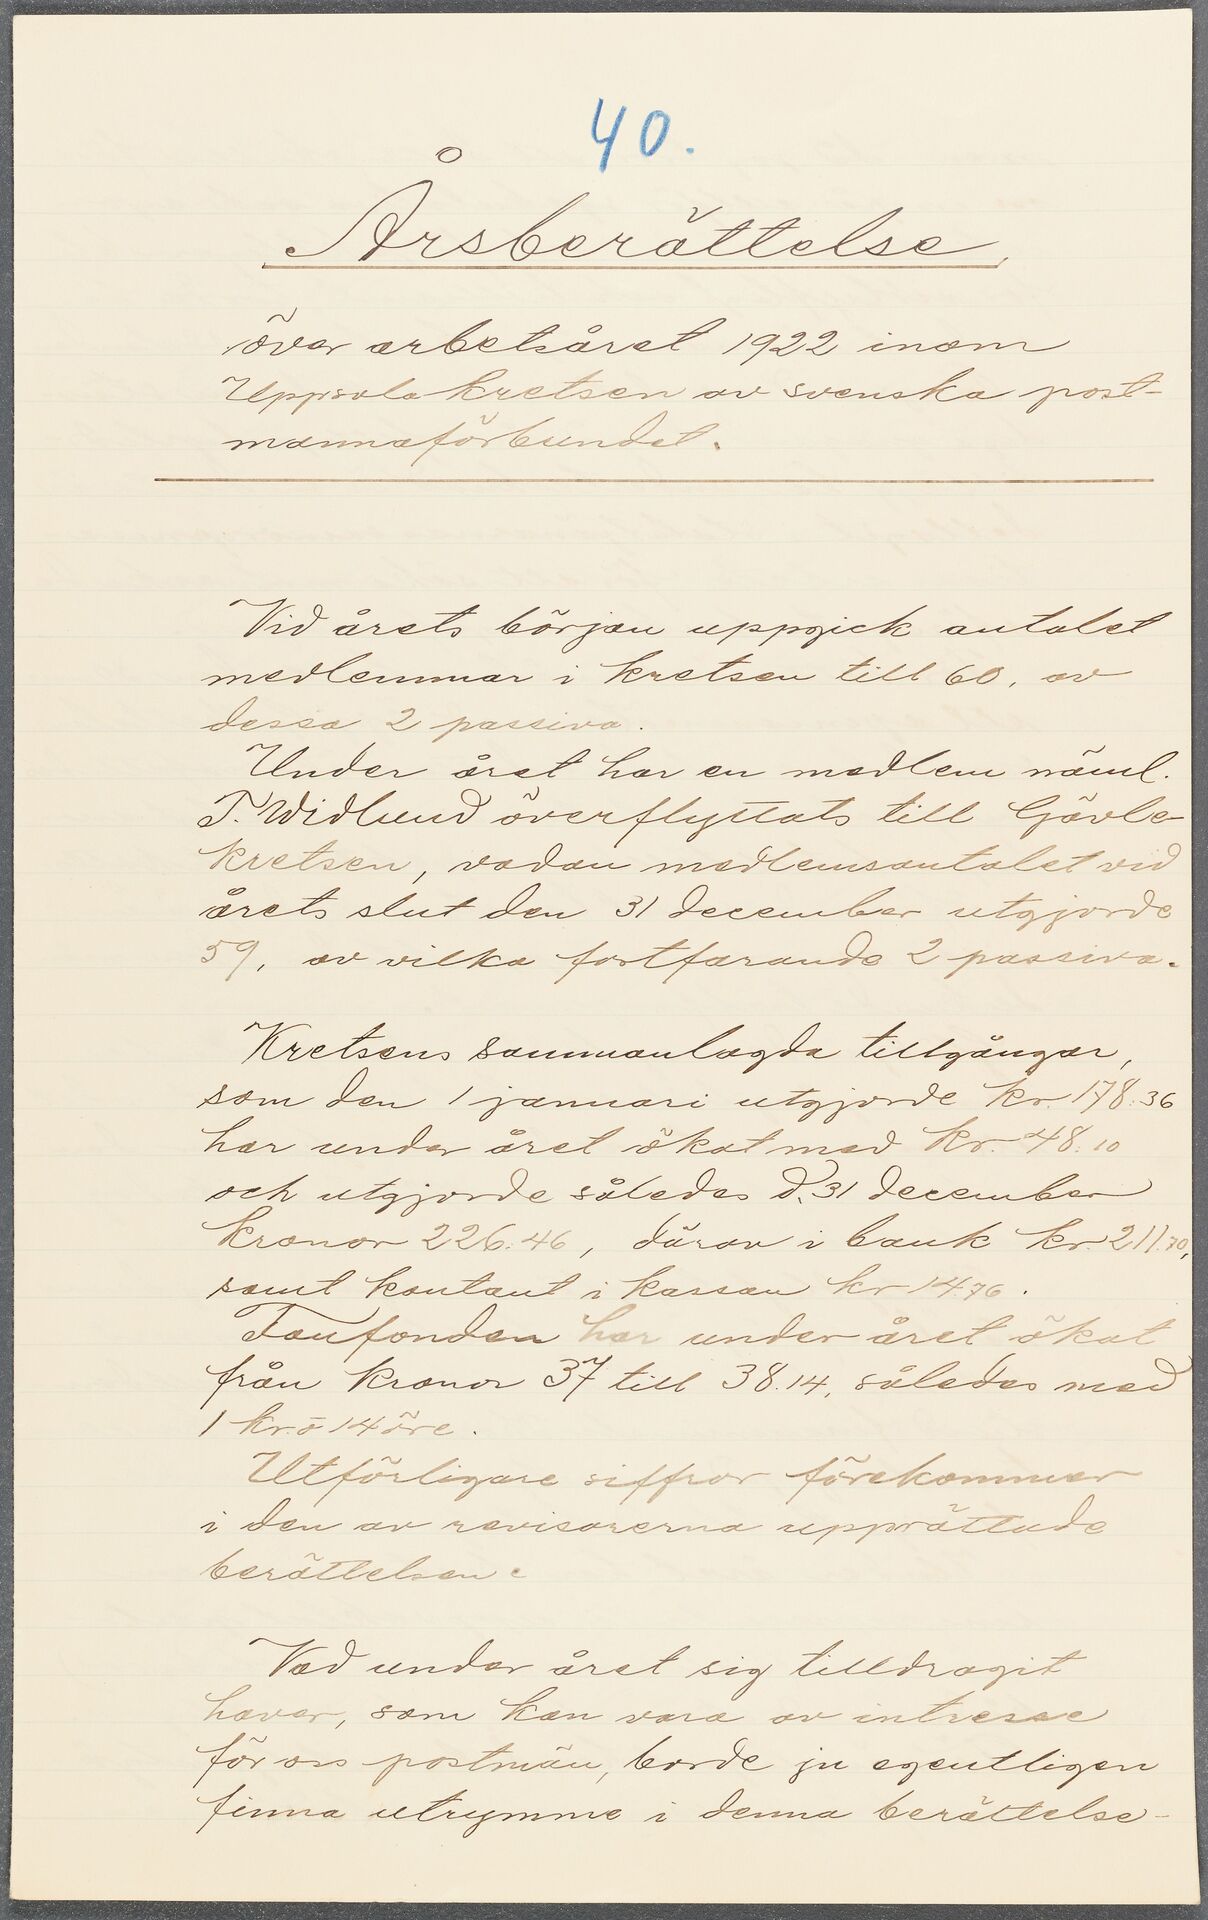 40.
Årsberättelse
över arbetsåret 1922 inom
Uppsalakretsen av svenska post-
mannaförbundet.
Vid årets början uppgick antalet
medlemmar i kretsen till 60, av
dessa 2 passiva.
Under året har en medlem näml.
T. Widlund överflyttats till Gävle-
kretsen, vadan medlemsantalet vid
årets slut den 31 december utgjorde
59, av vilka fortfarande 2 passiva.
Kretsens sammanlagda tillgångar,
som den 1 januari utgjorde kr. 178.36
har under året ökat med kr. 48.10
och utgjorde således d. 31 december
kronor 226.46, därav i bank kr. 211.70,
samt kontant i kassan kr 14.76.
Fanfonden har under året ökat
från kronor 37 till 38.14, således med
1 kr. o 14 öre.
Utförligare siffror förekommer
i den av revisorerna upprättade
berättelsen.
Vad under året sig tilldragit
haver, som kan vara av intresse
för oss postmän, borde ju egentligen
finna utrymme i denna berättelse-